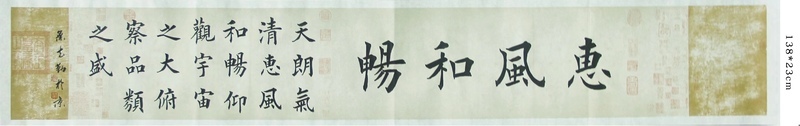 惠風和暢
天朗氣
清惠風
和暢仰
觀宇宙
之大俯
察品類
之盛
138*23cm